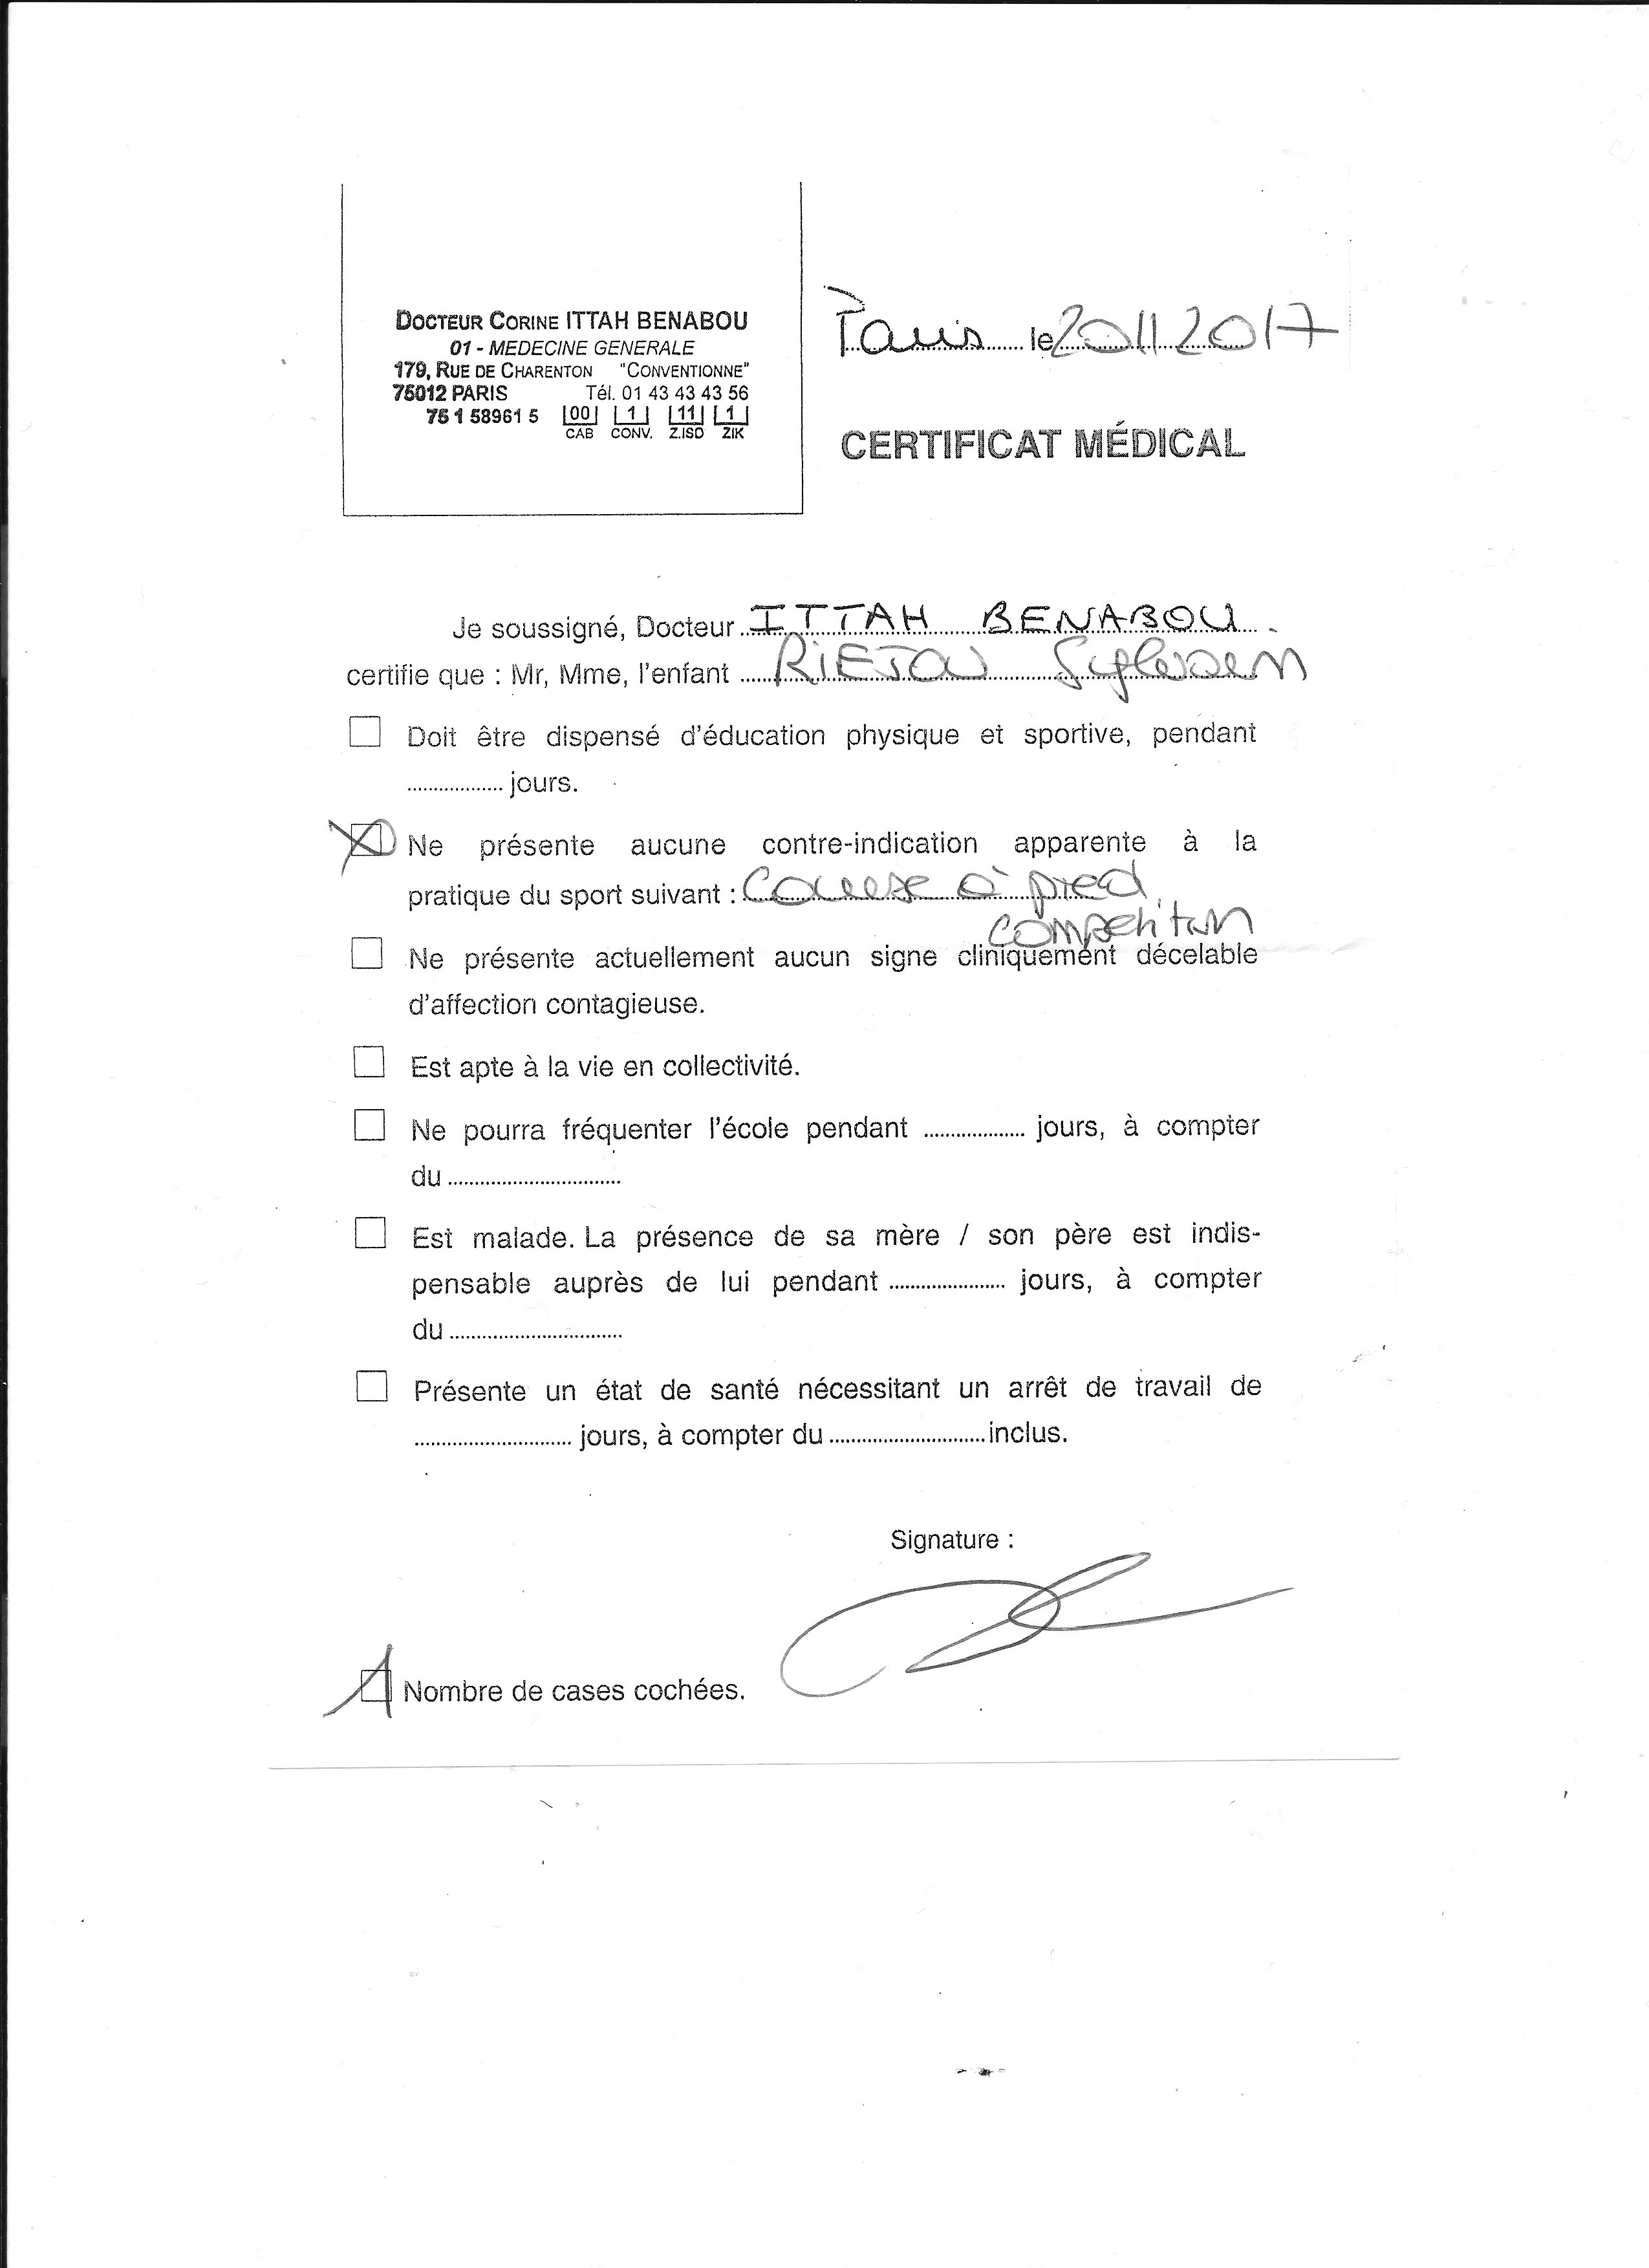 DOCTEUR CORINE ITTAH BENABOU
01 - MEDECINE GENERALE
179, RUE DE CHARENTON "CONVENTIONNE"
75012 PARIS Tél. 01 43 43 43 56
75 1 58961 5 00 1 11 1
CAB CONV. Z.ISD ZIK
Paris le 20 11 2017
CERTIFICAT MÉDICAL
Je soussigné, Docteur ITTAH BENABOU
certifie que : Mr, Mme, l'enfant RIEJOU Sylvain
Doit être dispensé d'éducation physique et sportive, pendant
.................. jours.
Ne présente aucune contre-indication apparente à la
pratique du sport suivant : Course à pied
competition
Ne présente actuellement aucun signe cliniquement décelable
d'affection contagieuse.
Est apte à la vie en collectivité.
Ne pourra fréquenter l'école pendant .................. jours, à compter
du ..................
Est malade. La présence de sa mère / son père est indis-
pensable auprès de lui pendant .................. jours, à compter
du ..................
Présente un état de santé nécessitant un arrêt de travail de
.................. jours, à compter du .................. inclus.
Signature :
1 Nombre de cases cochées.